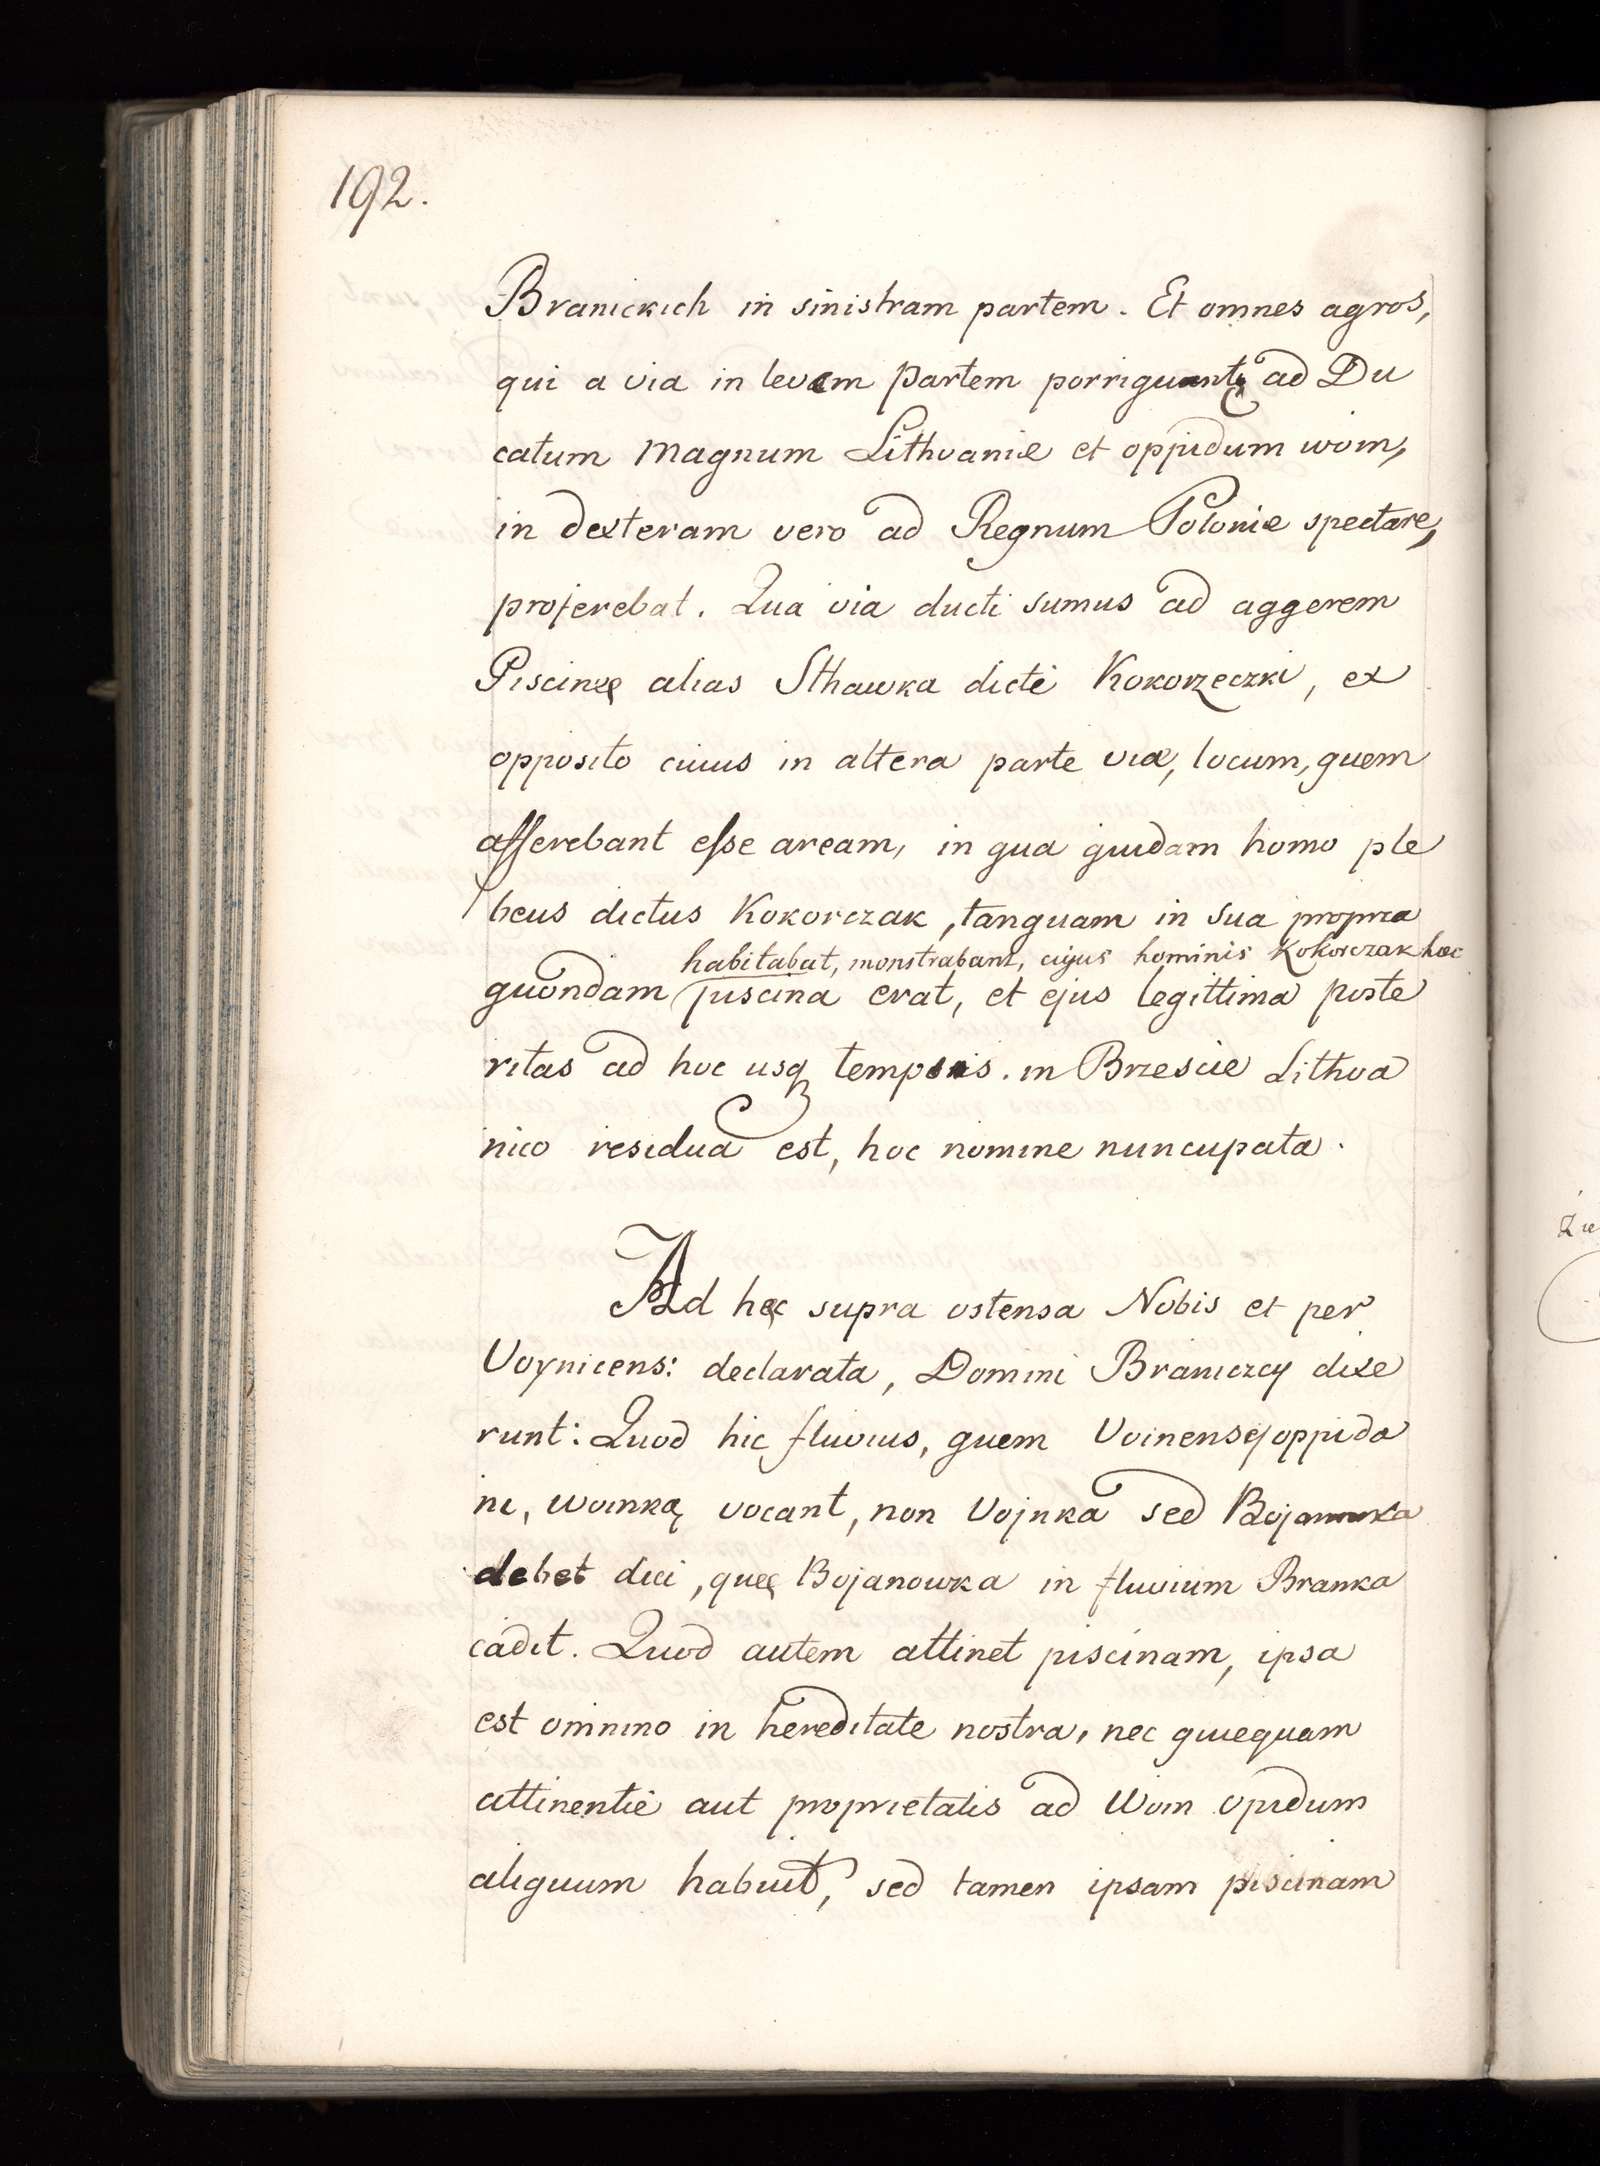 192.
Branickich in sinistram partem. Et omnes agros,
qui a via in levem partem porriguntę ad Du
catum Magnum Lithvaniæ et oppidum woin,
in dexteram vero ad Regnum Poloniæ spectare,
proferebat. Qua via ducti sumus ad aggerem
Piscinę alias Sthawka dicti Kokorzeczki, ex
opposito cuius in altera parte viæ, locum, quem
asserebant esse aream, in qua quidam homo ple
beus dictus Kokorczak, tanquam in sua propria
habitabat, monstrabant, cujus hominis Kokorczak hæc
quondam piscina erat, et ejus legittima poste
ritas ad hoc usq temporis. in Brzescie Lithva
nico residua est, hoc nomine nuncupata.
Ad hęc supra ostensa Nobis et per
Voynicens: declarata, Domini Braniczcy dixe
runt: Quod hic fluvius, quem Voinensej oppida
ni, woinką vocant, non Vojnka sed Bojanowka
debet dici, quę Bojanowka in fluvium Branka
cadit. Quod autem attinet piscinam, ipsa
est omnino in hereditate nostra, nec quicquam
attinentiæ aut proprietatis ad Woin opidum
aliquum habuit, sed tamen ipsam piscinam